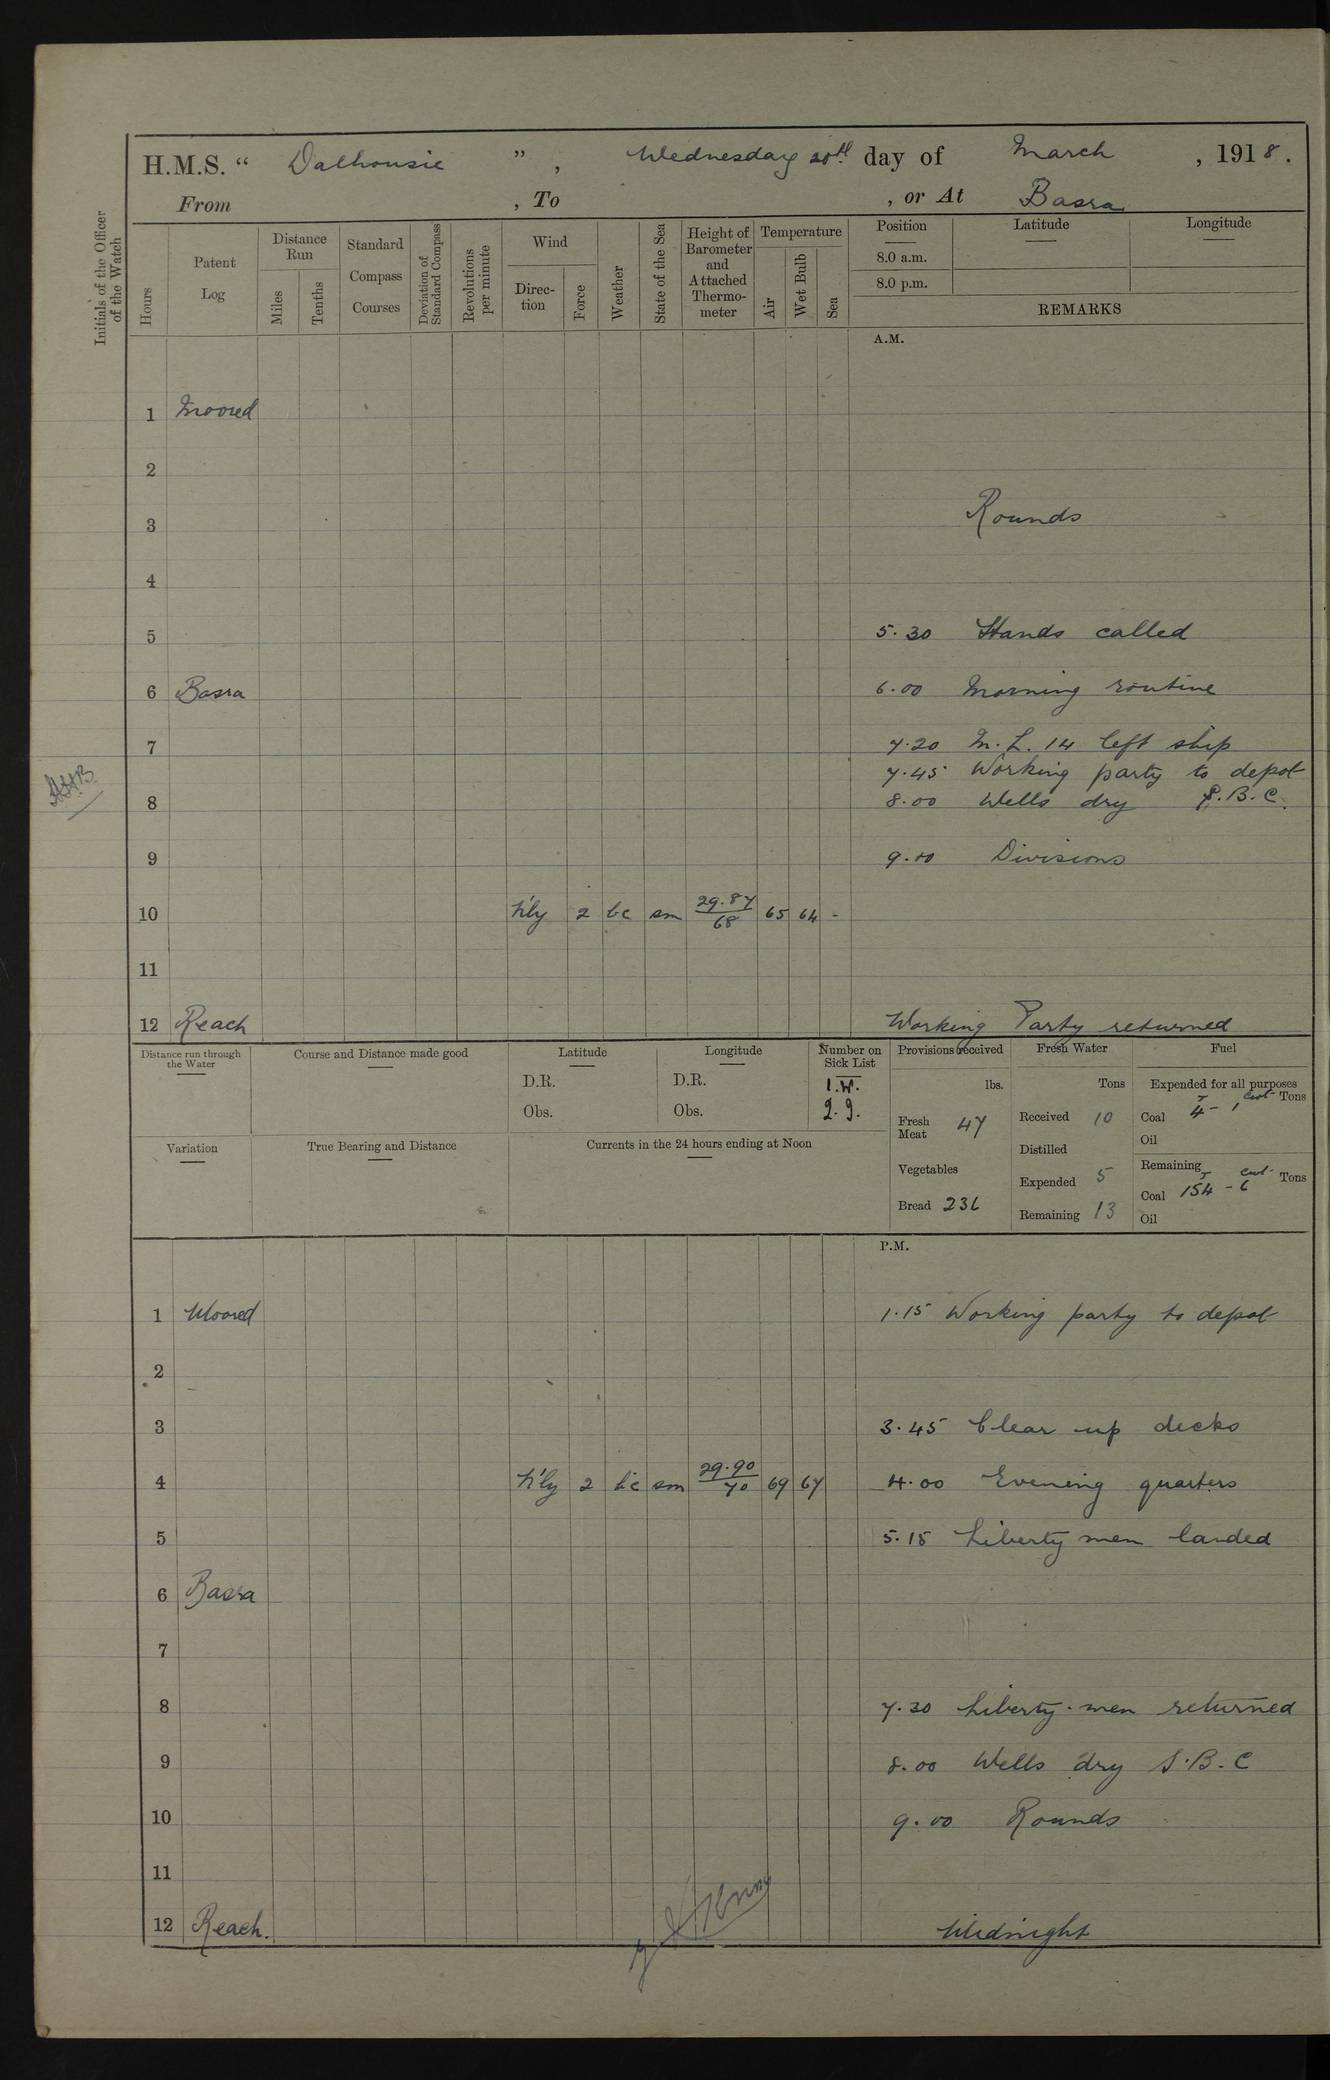 H.M.S. " Dalhousie " , Wednesday 20th day of March , 1918.
From , To , or At Basra
Initials of the Officer of the Watch
Hours
Patent Log
Distance Run
Miles
Tenths
Standard Compass Courses
Deviation of Standard Compass
Revolutions per minute
Wind
Direction
Force
Weather
State of the Sea
Height of Barometer and Attached Thermometer
Temperature
Air
Wet Bulb
Sea
Position Latitude Longitude
8.0 a.m.
8.0 p.m.
REMARKS
A.M.
1 Moored
2
Rounds
3
4
5 5.30 Hands called
6 Basra 6.00 Morning routine
7 7.20 M.L. 14 left ship
7.45 Working party to depot
8 8.00 Wells dry S.B.C.
9 9.00 Divisions
10 N'ly 2 bc sm 29.87/68 65 64 -
11
12 Reach Working Party returned
Distance run through the Water
Course and Distance made good
Latitude
D.R.
Obs.
Longitude
D.R.
Obs.
Number on Sick List
1.W.
2.9.
Provisions received
lbs.
Fresh Meat 47
Vegetables
Bread 236
Fresh Water
Tons
Received 10
Distilled
Expended 5
Remaining 13
Fuel
Expended for all purposes
Coal T 4 - 1 cwt Tons
Oil
Remaining
Coal T 154 - 6 cwt Tons
Oil
Variation
True Bearing and Distance
Currents in the 24 hours ending at Noon
P.M.
1 Moored 1.15 Working party to depot
2
3 3.45 Clear up decks
4 N'ly 2 bc sm 29.90/70 69 67 4.00 Evening quarters
5 5.15 Liberty men landed
6 Basra
7
8 7.30 Liberty-men returned
9 8.00 Wells dry S.B.C
10 9.00 Rounds
11
12 Reach. Midnight